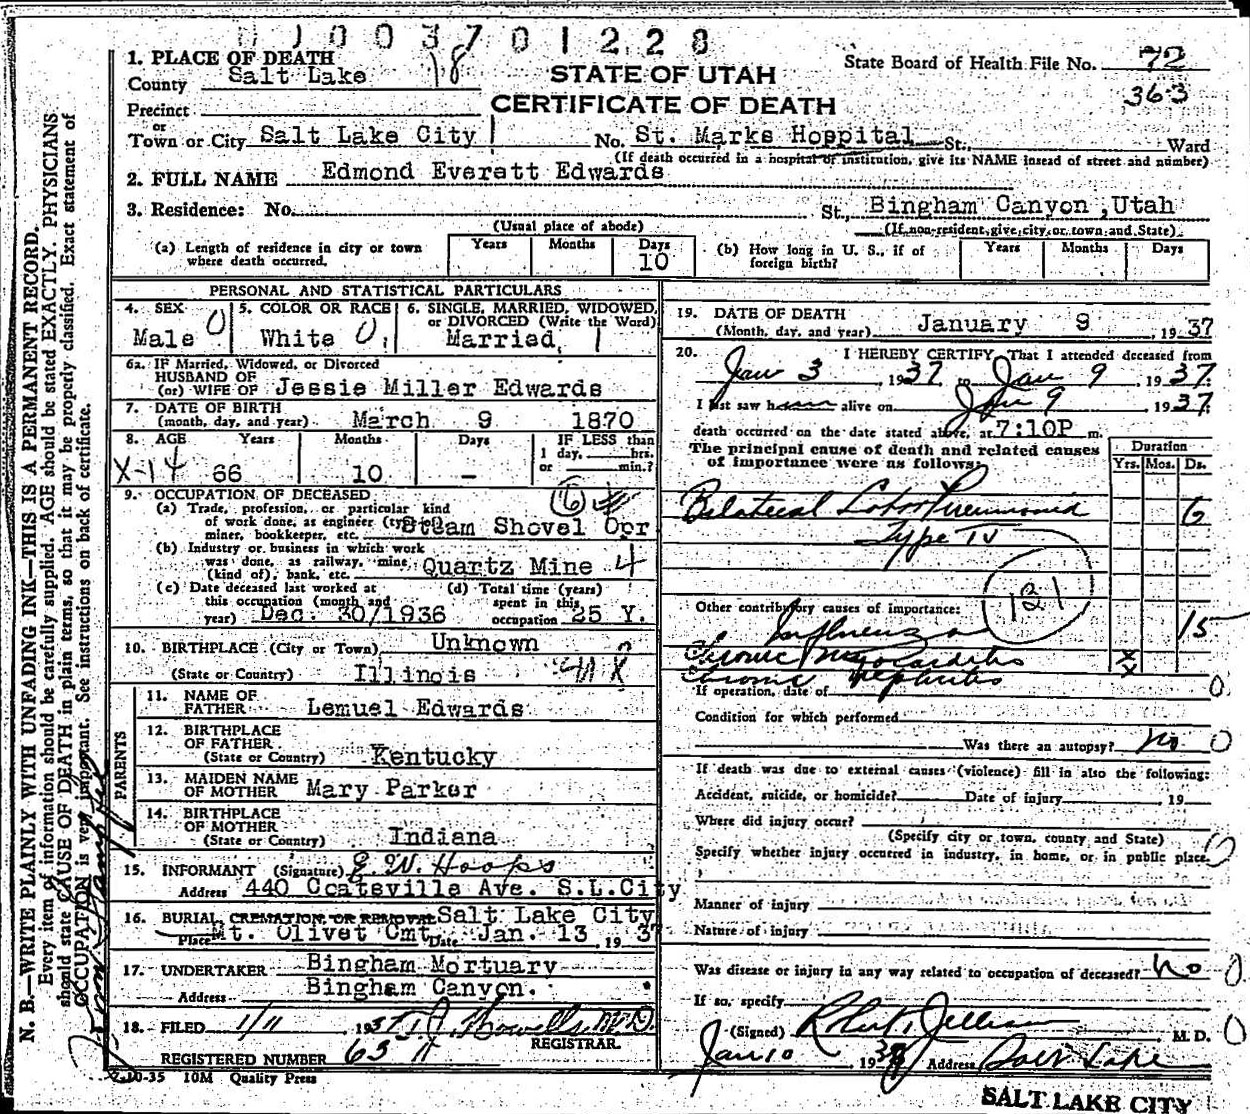 0 1 0 0 3 7 0 1 2 2 8
1. PLACE OF DEATH
County Salt Lake 18
STATE OF UTAH
CERTIFICATE OF DEATH
State Board of Health File No. 72
363
Precinct
or
Town or City Salt Lake City No. St. Marks Hospital St., Ward
(If death occurred in a hospital or institution, give its NAME insead of street and number)
2. FULL NAME Edmond Everett Edwards
3. Residence: No. St., Bingham Canyon ,Utah
(Usual place of abode) (If non-resident, give, city, or, town, and State)
(a) Length of residence in city or town where death occurred. Years Months Days 10
(b) How long in U. S., if of foreign birth? Years Months Days
PERSONAL AND STATISTICAL PARTICULARS
4. SEX Male 0
5. COLOR OR RACE White 0
6. SINGLE, MARRIED, WIDOWED, or DIVORCED (Write the Word) Married 1
6a. IF Married, Widowed, or Divorced
HUSBAND OF
(or) WIFE OF Jessie Miller Edwards
7. DATE OF BIRTH
(month, day, and year) March 9 1870
8. AGE Years Months Days IF LESS than
1 day, hrs.
or min.?
X-14 66 10 -
9. OCCUPATION OF DECEASED
(a) Trade, profession, or particular kind
of work done, as engineer (type of) Steam Shovel Opr
miner, bookkeeper, etc.
(b) Industry or business in which work
was done, as railway, mine, Quartz Mine 4
(kind of), bank, etc.
(c) Date deceased last worked at
this occupation (month and
year) Dec. 30/1936
(d) Total time (years)
spent in this
occupation 25 Y.
10. BIRTHPLACE (City or Town) Unknown
(State or Country) Illinois
PARENTS
11. NAME OF
FATHER Lemuel Edwards
12. BIRTHPLACE
OF FATHER
(State or Country) Kentucky
13. MAIDEN NAME
OF MOTHER Mary Parker
14. BIRTHPLACE
OF MOTHER
(State or Country) Indiana
15. INFORMANT (Signature) E. W. Hoops
Address 440 Coatsville Ave. S.L.City
16. BURIAL, CREMATION, OR REMOVAL Salt Lake City
Place Mt. Olivet Cmt Date Jan. 13, 1937
17. UNDERTAKER Bingham Mortuary
Address Bingham Canyon.
18. FILED 1/11 1937 Howells M.D.
REGISTRAR.
REGISTERED NUMBER 63
7-10-35 10M Quality Press
19. DATE OF DEATH
(Month, day, and year) January 9, 1937
20. I HEREBY CERTIFY, That I attended deceased from
Jan 3, 1937 to Jan 9, 1937.
I last saw him alive on Jan 9 1937
death occurred on the date stated above, at 7:10P m.
The principal cause of death and related causes
of importance were as follows:
Duration
Yrs. Mos. Ds.
Bilateral Lobar Pneumonia 6
Type IV
121
Other contributory causes of importance:
Influenza 15
Chronic Myocarditis x
Chronic Nephritis x
If operation, date of 0
Condition for which performed
Was there an autopsy? no 0
If death was due to external causes (violence) fill in also the following:
Accident, suicide, or homicide? Date of injury , 19
Where did injury occur?
(Specify city or town, county and State)
Specify whether injury occurred in industry, in home, or in public place.
Manner of injury
Nature of injury
Was disease or injury in any way related to occupation of deceased? No 0
If so, specify
(Signed) Robert Jellison M. D. 0
Jan 10, 1938 Address Salt Lake
SALT LAKE CITY
N. B.—WRITE PLAINLY WITH UNFADING INK—THIS IS A PERMANENT RECORD.
Every item of information should be carefully supplied. AGE should be stated EXACTLY. PHYSICIANS
should state CAUSE OF DEATH in plain terms, so that it may be properly classified. Exact statement of
OCCUPATION is very important. See instructions on back of certificate.